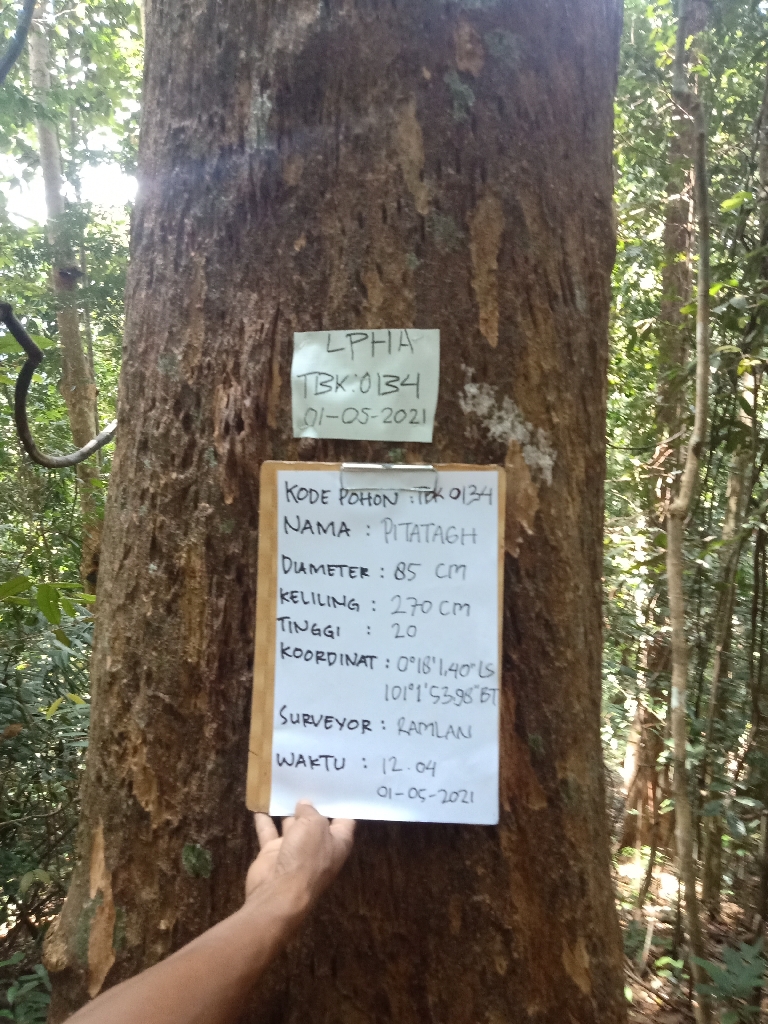 LPHA
TBK:0134
01-05-2021
KODE POHON : TBK 0134
NAMA : PITATAGH
DIAMETER : 85 CM
KELILING : 270 CM
TINGGI : 20
KOORDINAT : 0°18'1,40" LS
101°1'53,98" BT
SURVEYOR : RAMLAN
WAKTU : 12.04
01-05-2021